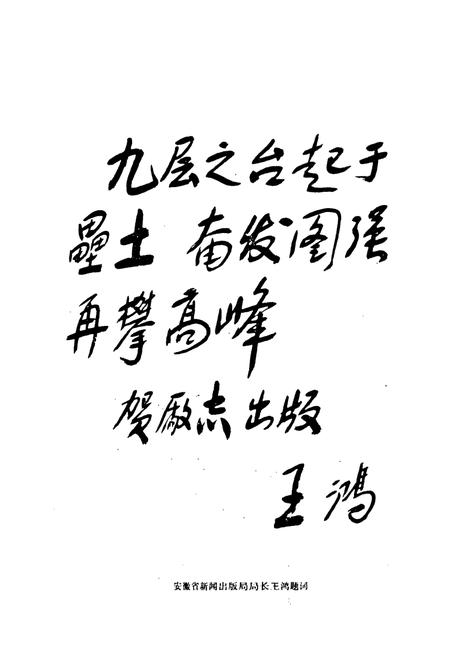 九层之台起于
壘土 奋发图强
再攀高峰
贺厰志出版
王鸿
安徽省新闻出版局局长王鸿题词